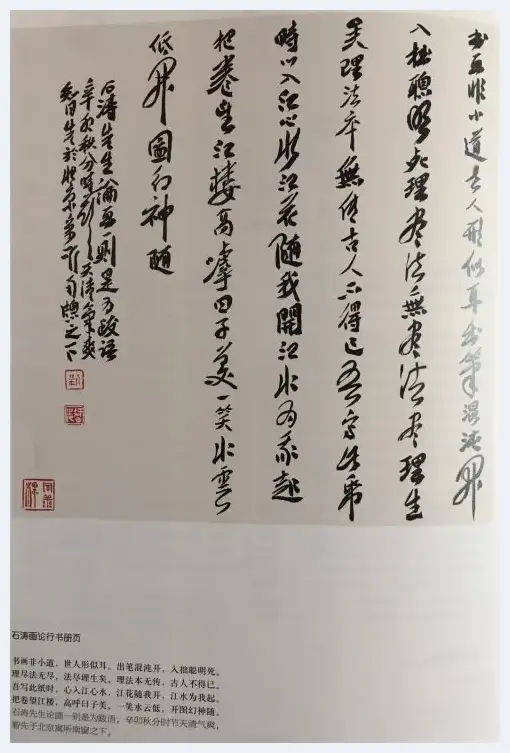 书画非小道世人形似耳出笔混沌開
入拙聰明死理尽法無尽法尽理生
矣理法本無传古人不得已吾写此纸
時心入江心水江花随我開江水为我起
把卷望江楼高嘑曰子美一笑水雲
低開圖幻神随
石涛先生论画一则是为跋语
辛卯秋分时节天清氣爽
智先於北京寓所南窗之下
石涛画论行书册页
书画非小道，世人形似耳。出笔混沌开，入拙聪明死。
理尽法无尽，法尽理生矣。理法本无传，古人不得已。
吾写此纸时，心入江心水，江花随我开，江水为我起。
把卷望江楼，高呼曰子美，一笑水云低，开图幻神随。
石涛先生论画一则是为跋语，辛卯秋分时节天清气爽，
智先于北京寓所南窗之下。